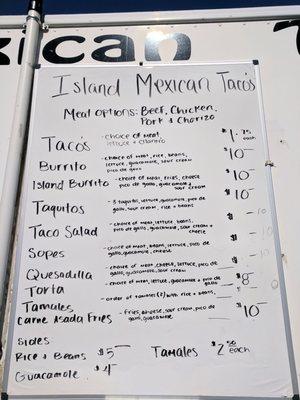 xican
Island Mexican Tacos
Meat options: Beef, Chicken,
Pork & Chorizo
Tacos - choice of meat, $1.75
lettuce & cilantro each
Burrito - choice of meat, rice, beans, $10
lettuce, guacamole, sour cream
pico de gallo
Island Burrito - choice of meat, fries, cheese $10
pico de gallo, guacamole & sour cream
Taquitos - 3 taquitos, lettuce, guacamole, pico de $10
gallo, sour cream, rice & beans
Taco Salad - choice of meat, lettuce, beans, 10
pico de gallo, guacamole, sour cream & cheese
Sopes - choice of meat, beans, lettuce, pico de $10
gallo, guacamole, cheese
Quesadilla - choice of meat, cheese, lettuce, pico de 10
gallo, guacamole, sour cream
Torta - choice of meat, lettuce, guacamole & pico de gallo $8
Tamales - order of tamales (2) with rice & beans
Carne Asada Fries - fries, cheese, sour cream, pico de $10
gallo, guacamole
Sides
Rice & Beans $5 Tamales $2.50 each
Guacamole $4